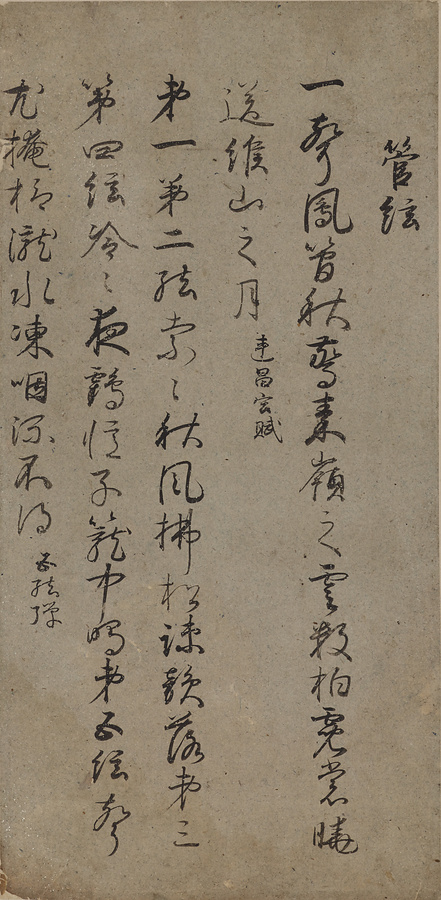 管絃
一聲鳳管秋驚秦嶺之雲數拍霓裳曉
送緱山之月 連昌宮賦
第一第二絃索〻秋風拂松疎韻落第三
第四絃冷〻夜鶴憶子籠中鳴第五絃聲
尤掩抑瀧水凍咽流不得 五絃弾